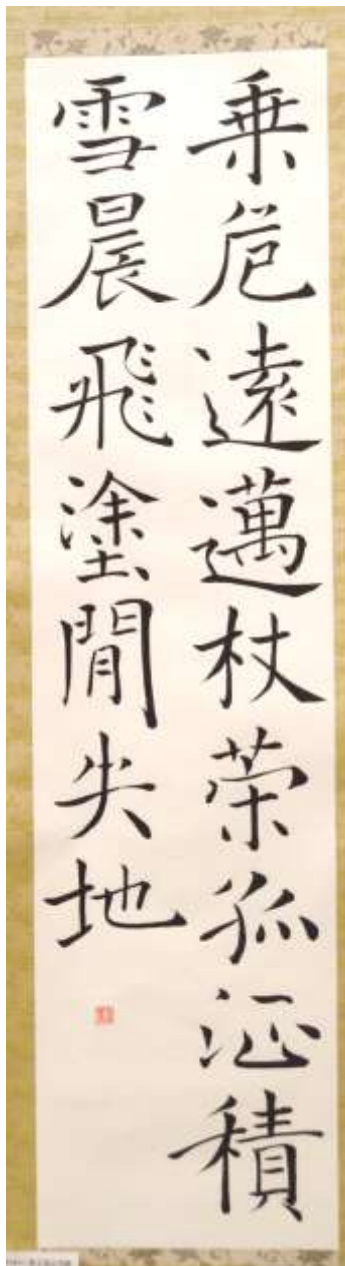 乗危遠邁杖策孤征積
雪晨飛塗閒失地